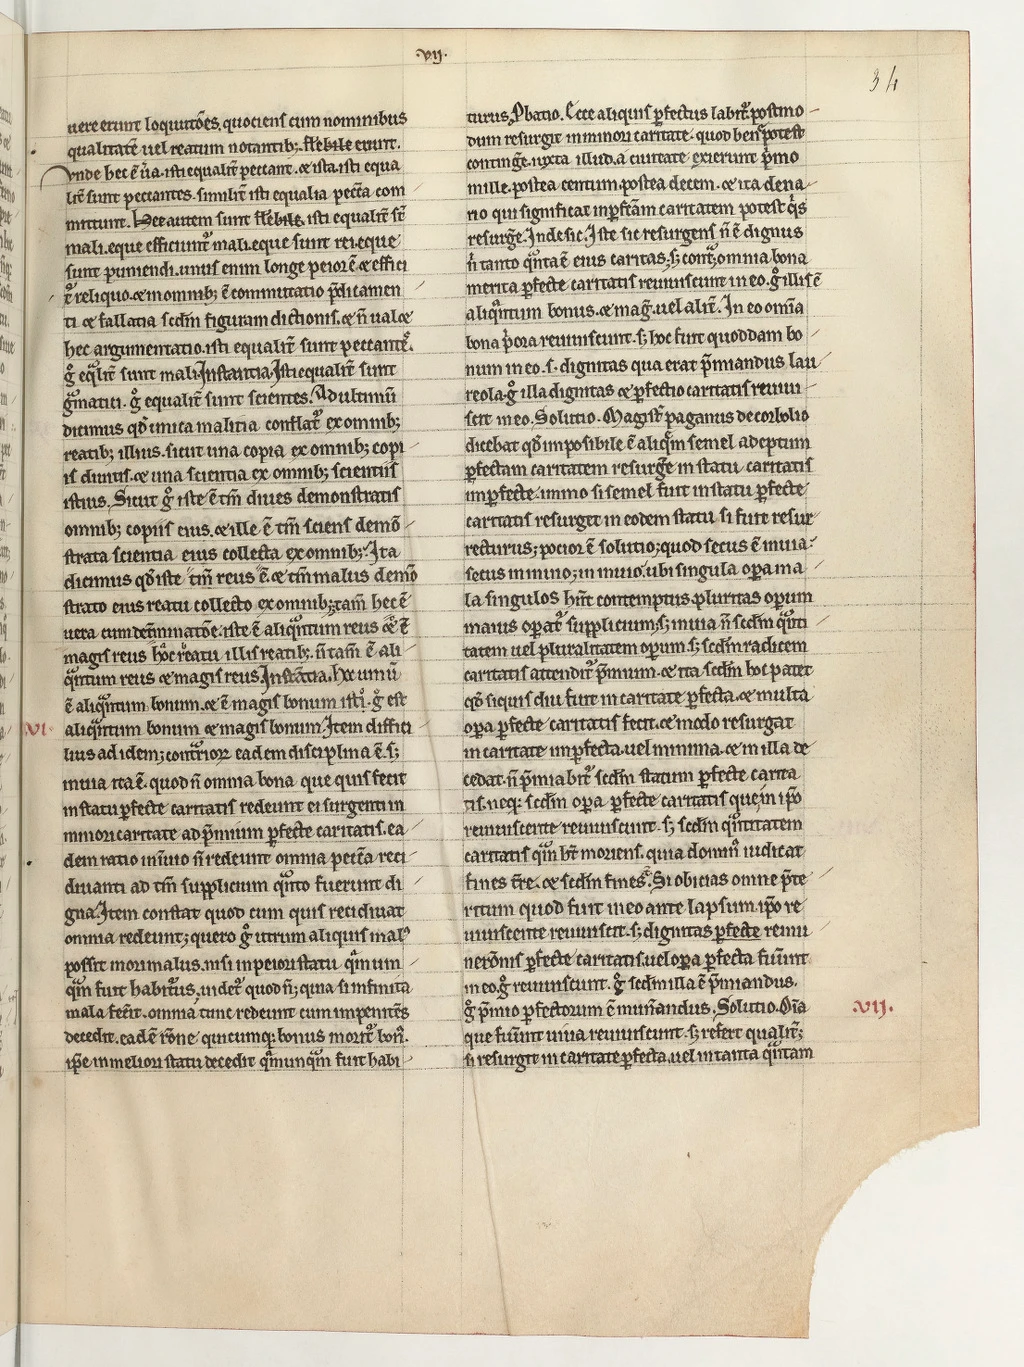 .vij.
34
uere erunt loquutōes. quociens cum nominibus
qualitatē uel reatum notantibꝫ. flebile erunt.
Vnde hec ē ūa. isti equalit̄ peccant. ⁊ ista. isti equa
lit̄ sunt peccantes. similit̄ isti equalia pecc̄ta com
mittunt. Hec autem sunt flebile. isti equalit̄ st̄
mali. eque efficiunt᷑ mali. eque sunt rei. eque
sunt puniendi. unus enim longe peior ē ⁊ effici
t᷑ reliquo. ⁊ in omnibꝫ ē commutatio p̄dicamen
ti ⁊ fallatia scd̄m figuram dictionis. ⁊ n̄ ualet
hec argumentatio. isti equalit̄ sunt peccantes.
g̊ eq̄lit̄ sunt mali. Instantia. Isti equalit̄ sunt
gͣmatici. g̊ equalit̄ sunt scientes. Ad ultimū
dicimus qđ unica malitia conflat᷑ ex omnibꝫ
reatibꝫ illius. sicut una copia ex omnibꝫ copi
is diuitis. ⁊ una scientia ex omnibꝫ scientiis
istius. Sicut g̊ iste ē tm̄ diues demonstratis
omnibꝫ copiis eius. ⁊ ille ē tm̄ sciens demō
strata scientia eius collecta ex omnibꝫ. Ita
dicimus qđ iste tm̄ reus ē. ⁊ tm̄ malus demō
strato eius reatu collecto ex omnibꝫ. tam̄ hec ē
uera cum det̄minatōe. iste ē aliqͣntum reus ⁊ ē
magis reus hoc reatu illis reatibꝫ. n̄ tam̄ ē ali
qͣntum reus ⁊ magis reus. Instātia. Hec unū
ē aliqͣntum bonum. ⁊ ē magis bonum isti. g̊ est
.VI. aliqͣntum bonum ⁊ magis bonum. Item diffici
lius ad idem; contrͣrior eadem disciplina ē. sꝫ
in uia ita ē. quod n̄ omnia bona que quis fecit
in statu ꝑfecte caritatis redeunt ei surgenti in
minori caritate ad p̄mium ꝑfecte caritatis. ea
dem ratio in uio n̄ redeunt omnia pecc̄ta reci
diuanti ad tm̄ supplicium qͣnto fuerunt di
gna. Item constat quod cum quis recidiuat
omnia redeunt; quero g̊ utrum aliquis malꝰ
possit mori malus. nisi in peiori statu qͣm um
qͣm fuit habiturus. uidet᷑ quod n̄; quia si infinita
mala fecit. omnia tunc redeunt cum impenitēs
decedit. eadē rōne quicumqꝫ bonus morit᷑ bon̄.
ip̄e in meliori statu decedit qͣm unqͣm fuit habi
turus. Probatio. Ecce aliquis ꝑfectus labit᷑. postmo
dum resurgit in minori caritate. quod bene potest
contingē. iuxta illud. a ciuitate exierunt p̄mo
mille. postea centum. postea decem. ⁊ ita dena
rio qui significat inꝑfc̄am caritatem potest qͥs
resurgē. Inde sic. Iste sic resurgens n̄ ē dignus
n̄ tanto qͣnta ē eius caritas. sꝫ contͣ. omnia bona
merita ꝑfecte caritatis reuiuiscunt in eo. g̊ illis ē
aliqͣntum bonus. ⁊ mag̊. uel alit̄. In eo om̄ia
bona pͥora reuiuiscunt. sꝫ hoc fuit quoddam bo
num in eo. s. dignitas qua erat p̄miandus lau
reola. g̊ illa dignitas ⁊ ꝑfectio caritatis reuiui
scit in eo. Solutio. Magist᷑ paganus de corbolio
dicebat qđ imposibile ē aliqͣm semel adeptum
ꝑfectam caritatem resurgē in statu caritatis
imꝑfecte. immo si semel fuit in statu ꝑfecte
caritatis resurget in eodem statu si fuit resur
recturus; pocior ē solutio; quod secus ē in uia.
secus in inuio; in inuio. ubi singula oꝑa ma
la singulos hn̄t contemptus. pluritas oꝑum
maius oꝑat᷑ supplicium; sꝫ in uia n̄ scd̄m qͣnti
tatem uel pluralitatem oꝑum. sꝫ scd̄m radicem
caritatis attendit᷑ p̄mium. ⁊ ita scd̄m hoc patet
qđ si quis diu fuit in caritate ꝑfecta. ⁊ multa
oꝑa ꝑfecte caritatis fecit. ⁊ modo resurgat
in caritate imꝑfecta. uel minima. ⁊ in illa de
cedat. n̄ p̄mia bit᷑ scd̄m statum ꝑfecte carita
tis. neqꝫ scd̄m oꝑa ꝑfecte caritatis que in ip̄o
reuiuiscente reuiuiscunt. sꝫ scd̄m qͣntitatem
caritatis qͣm ht̄ moriens. quia domin̄ iudicat
fines t̄re. ⁊ scd̄m fines. Si obicias omne p̄te
ritum quod fuit in eo ante lapsum. ip̄o re
uiuiscente reuiuiscit. sꝫ dignitas ꝑfecte remu
nerōnis ꝑfecte caritatis. uel oꝑa ꝑfecta fuūnt
in eo. g̊ reuiuiscunt. g̊ scd̄m illa ē p̄miandus.
g̊ p̄mio ꝑfectorum ē mun̄andus. Solutio. Om̄ia .VII.
que fuūnt uiua reuiuiscunt. sꝫ refert qualit̄;
si resurgit in caritate ꝑfecta. uel in tanta qͣntam